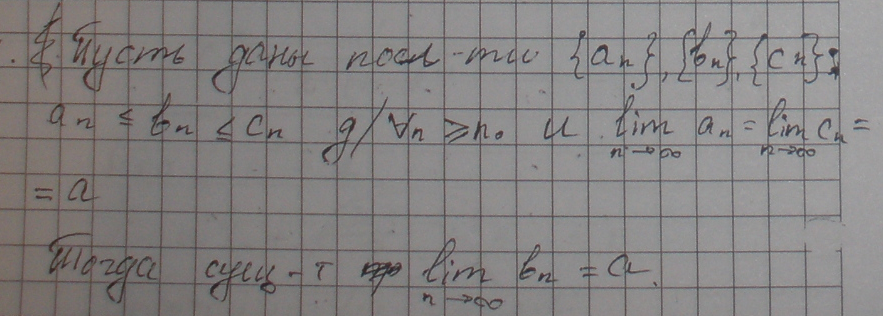 Пусть даны посл-ти {aₙ}, {bₙ}, {cₙ}:
aₙ ≤ bₙ ≤ cₙ д/∀n ≥ n₀ и lim aₙ = lim cₙ =
n→∞ n→∞
= a
Тогда сущ-т lim bₙ = a.
n→∞